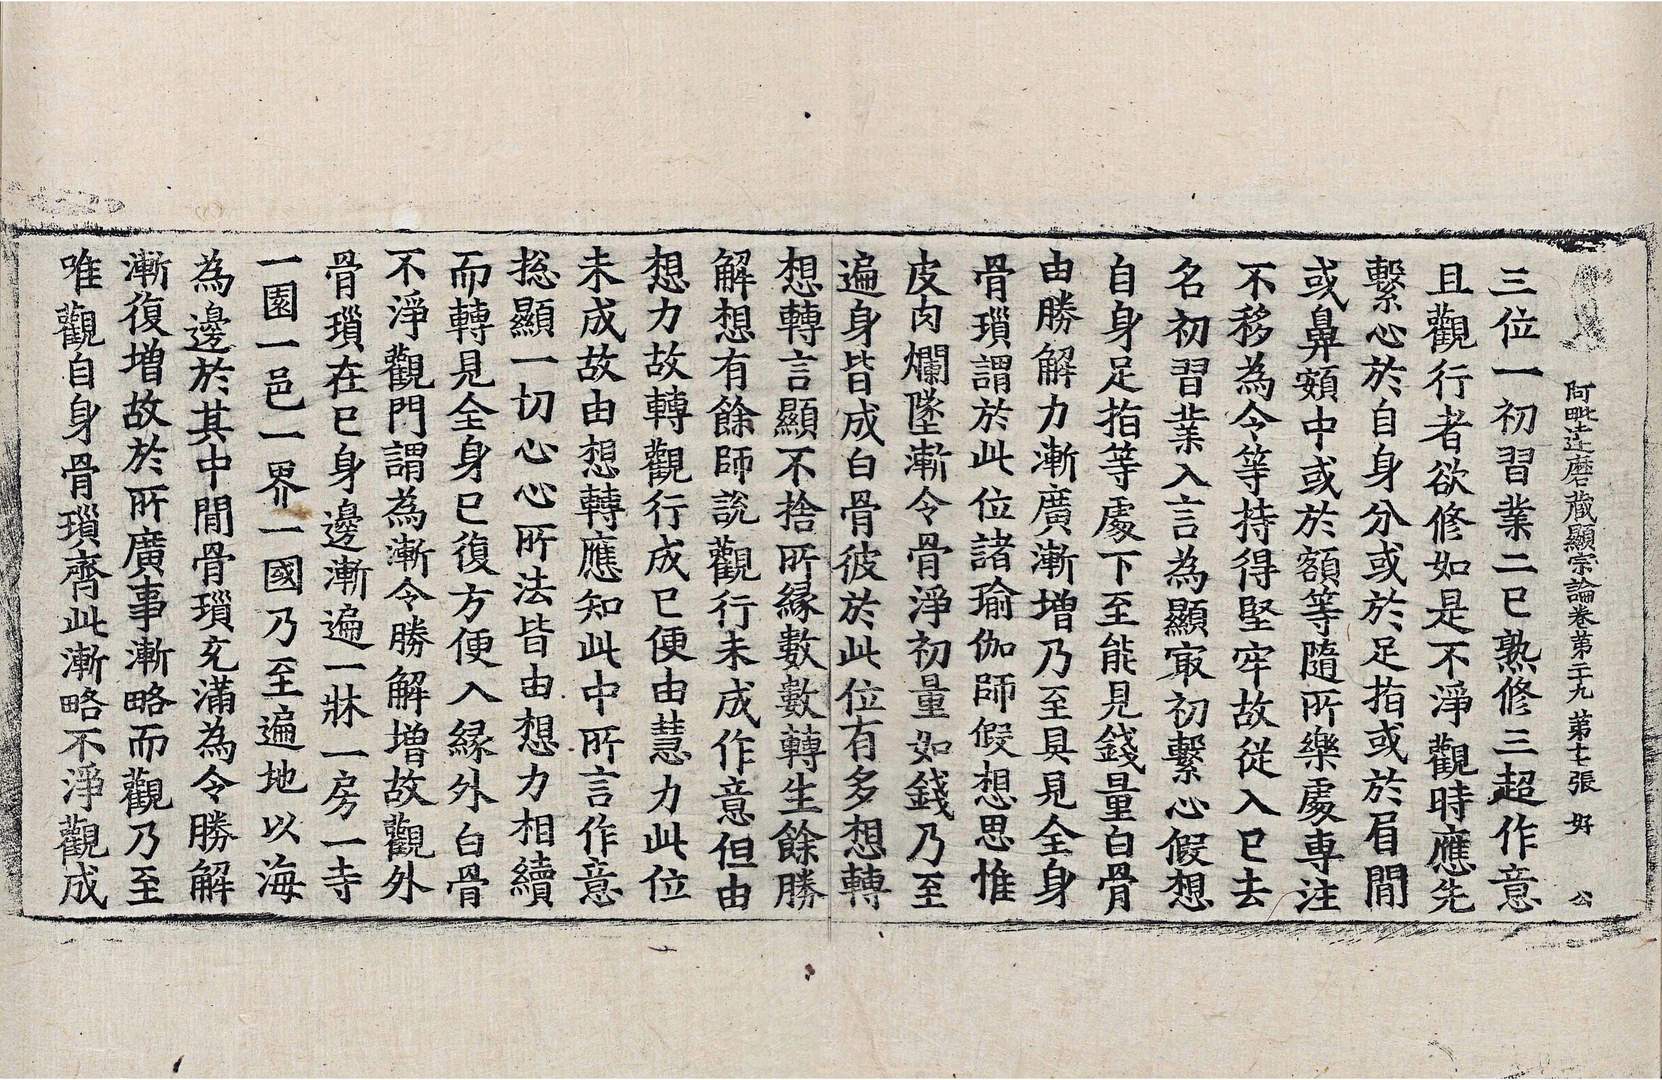 阿毗達磨藏顯宗論卷第二十九 第十七張 好 公
三位一初習業二已熟修三超作意
且觀行者欲修如是不淨觀時應先
繫心於自身分或於足指或於眉閒
或鼻頞中或於額等隨所樂處專注
不移為令等持得堅牢故從入已去
名初習業入言為顯㝡初繫心假想
自身足指等處下至能見錢量白骨
由勝解力漸廣漸增乃至具見全身
骨瑣謂於此位諸瑜伽師假想思惟
皮肉爛墜漸令骨淨初量如錢乃至
遍身皆成白骨彼於此位有多想轉
想轉言顯不捨所緣數數轉生餘勝
解想有餘師說觀行未成作意但由
想力故轉觀行成已便由慧力此位
未成故由想轉應知此中所言作意
揔顯一切心心所法皆由想力相續
而轉見全身已復方便入緣外白骨
不淨觀門謂為漸令勝解增故觀外
骨瑣在已身邊漸遍一牀一房一寺
一園一邑一界一國乃至遍地以海
為邊於其中閒骨瑣充滿為令勝解
漸復增故於所廣事漸略而觀乃至
唯觀自身骨瑣齊此漸略不淨觀成